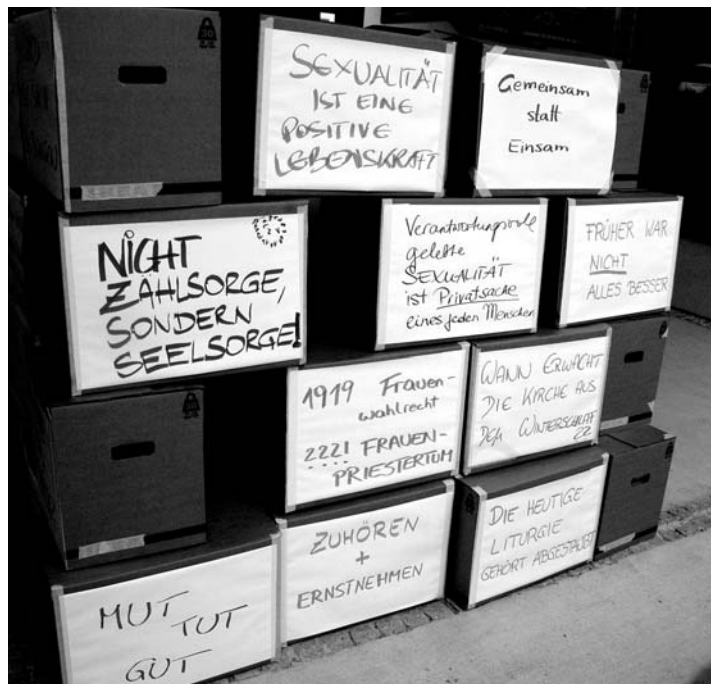 SEXUALITÄT
IST EINE
POSITIVE
LEBENSKRAFT
Gemeinsam
statt
Einsam
NICHT
ZÄHLSORGE,
SONDERN
SEELSORGE!
Verantwortungsvolle
gelebte
SEXUALITÄT
ist Privatsache
eines jeden Menschen
FRÜHER WAR
NICHT
ALLES BESSER
1919 Frauen-
wahlrecht
2221 FRAUEN-
PRIESTERTUM
WANN ERWACHT
DIE KIRCHE AUS
DEM WINTERSCHLAF
ZZ
MUT
TUT
GUT
ZUHÖREN
+
ERNSTNEHMEN
DIE HEUTIGE
LITURGIE
GEHÖRT ABGESTAUBT